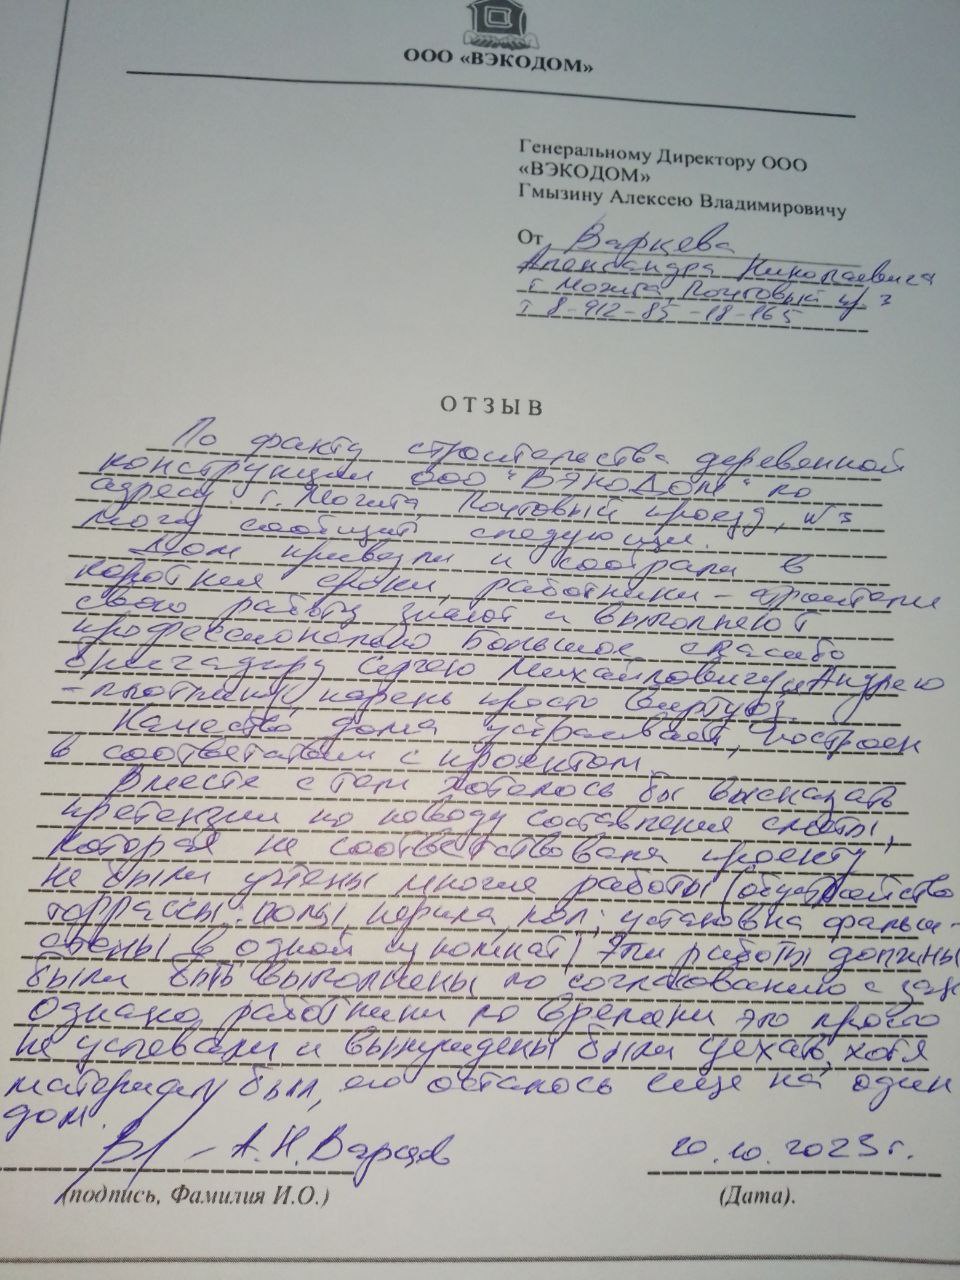 ООО «ВЭКОДОМ»
Генеральному Директору ООО
«ВЭКОДОМ»
Гмызину Алексею Владимировичу
От Варцева
Александра Николаевича
г Можга, Почтовый пр. 3
т 8-912-85-18-165
ОТЗЫВ
По факту строительства деревянной
конструкции ООО "ВЭКОДОМ" по
адресу: г. Можга, Почтовый проезд, №3
могу сообщить следующее.
Дом привезли и собрали в
короткие сроки, работники-строители
свою работу знают и выполняют
профессионально. Большое спасибо
бригадиру Сергею Михайловичу и Андрею
- плотнику, парень просто виртуоз.
Качество дома устраивает, построен
в соответствии с проектом.
Вместе с тем хотелось бы высказать
претензии по поводу составления сметы,
которая не соответствовала проекту,
не были учтены многие работы (обустройство
террассы: полы, перила, пол; установка фальш-
стены в одной из комнат) Эти работы должны
были быть выполнены по согласованию с
Однако, работники по времени это просто
не успевали и вынуждены были уехать, хотя
материал был, его осталось еще на один
дом.
- А.Н. Варцев 20.10.2023 г.
(подпись, Фамилия И.О.) (Дата).